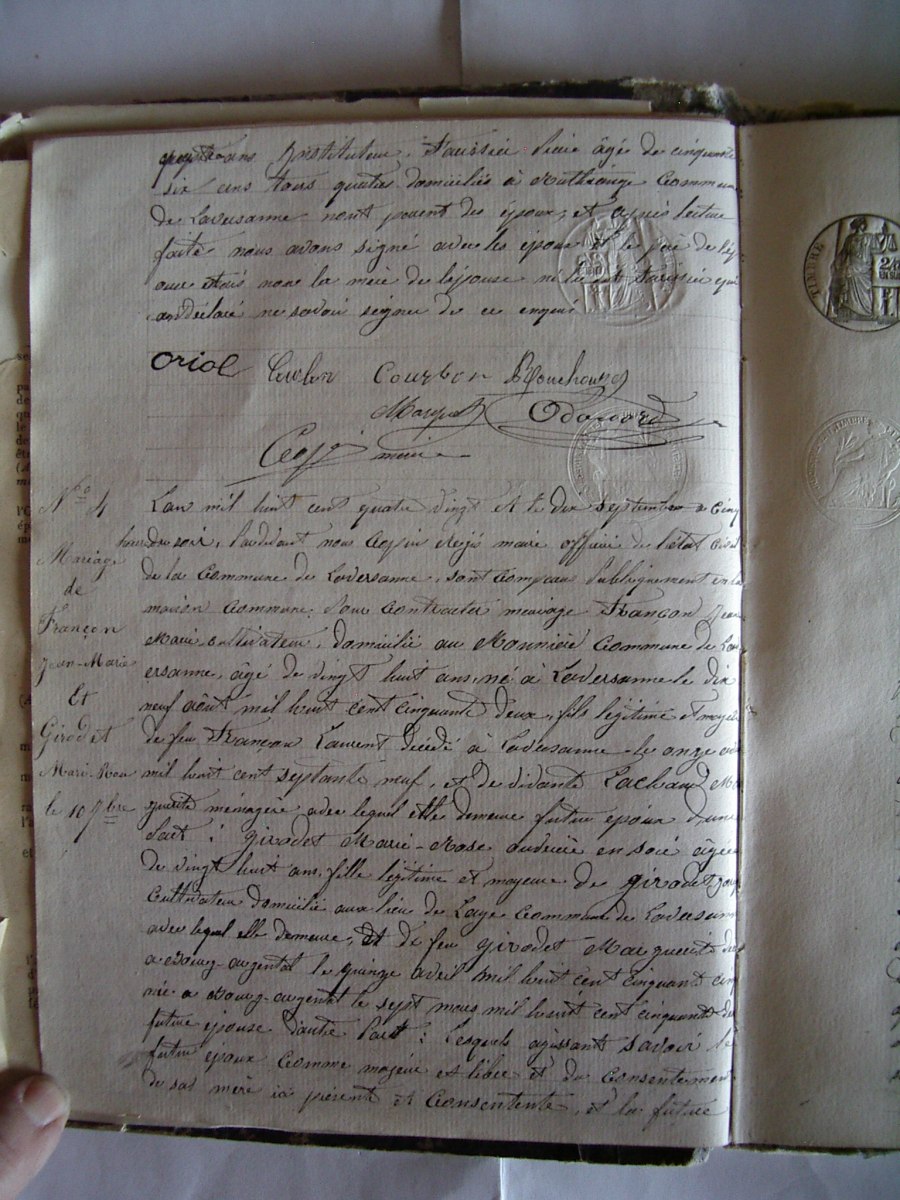 ans instituteur, Faurisier âgé de cinquante
six ans tous quatre domiciliés à Ruthiange Commune
de Laversanne nont parent des époux, et après lecture
faite nous avons signé avec les époux et le père de l'ép
non la mère de lépouse ni qui
ont déclaré ne savoir signer de ce enquis
Oriol Courbon
Marquet Odouard
maire
N.o 4
Mariage
de
Françon
Jean-Marie
Et
Girodet
Marie-Rose
le 10 7bre
L'an mil huit cent quatre vingt et le dix septembre a cinq
heure du soir, pardevant nous Régis maire officier de l'état civil
de la Commune de Laversanne, sont comparu publiquement en la
maison Commune pour contracter mariage Françon Jean
Marie cultivateur, domicilié au Monnière Commune de Lav
ersanne, âgé de vingt huit ans, né à Laversanne le dix
neuf août mil huit cent cinquante deux, fils légitime et majeur
de feu Françon Laurent décédé à Laversanne le onze
mil huit cent septante neuf, et de vivante Lachaud
ménagère avec lequel elle demeure futur époux d'une
part : Girodet Marie-Rose ourdisseuse en soie âgée
de vingt huit ans, fille légitime et majeure de Girodet
Cultivateur domicilié aux lieu de Laye Commune de Laversanne
avec lequel elle demeure, et de feu Girodet Marguerite
a Bourg-argental le quinze avril mil huit cent cinquante
née a Bourg-argental le sept mars mil huit cent cinquante
future épouse d'autre part : Lesquels agissant savoir le
futur époux comme majeur et libre et du consentement
de sas mère ici présente et consentente, et la future
TIMBRE